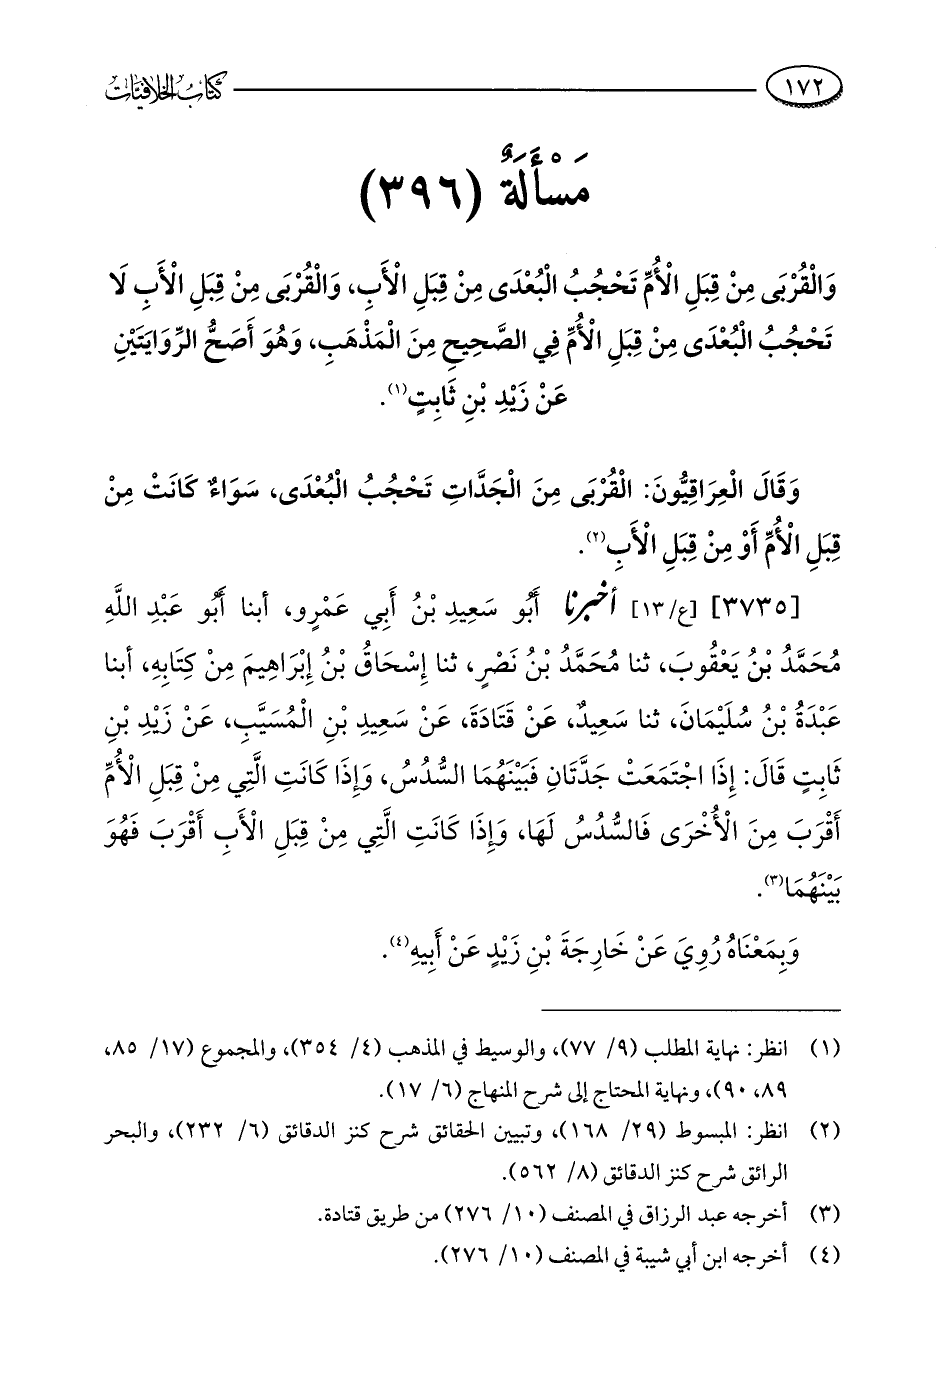 ١٧٢ كتاب الخلافيات
مَسْأَلَةٌ (٣٩٦)
وَالْقُرْبَى مِنْ قِبَلِ الْأُمِّ تَحْجُبُ الْبُعْدَى مِنْ قِبَلِ الْأَبِ، وَالْقُرْبَى مِنْ قِبَلِ الْأَبِ لَا
تَحْجُبُ الْبُعْدَى مِنْ قِبَلِ الْأُمِّ فِي الصَّحِيحِ مِنَ الْمَذْهَبِ، وَهُوَ أَصَحُّ الرِّوَايَتَيْنِ
عَنْ زَيْدِ بْنِ ثَابِتٍ(١).
وَقَالَ الْعِرَاقِيُّونَ: الْقُرْبَى مِنَ الْجَدَّاتِ تَحْجُبُ الْبُعْدَى، سَوَاءٌ كَانَتْ مِنْ
قِبَلِ الْأُمِّ أَوْ مِنْ قِبَلِ الْأَبِ(٢).
[٣٧٣٥] [ع/١٣] أخبرنا أَبُو سَعِيدِ بْنُ أَبِي عَمْرٍو، أبنا أَبُو عَبْدِ اللَّهِ
مُحَمَّدُ بْنُ يَعْقُوبَ، ثنا مُحَمَّدُ بْنُ نَصْرٍ، ثنا إِسْحَاقُ بْنُ إِبْرَاهِيمَ مِنْ كِتَابِهِ، أبنا
عَبْدَةُ بْنُ سُلَيْمَانَ، ثنا سَعِيدٌ، عَنْ قَتَادَةَ، عَنْ سَعِيدِ بْنِ الْمُسَيَّبِ، عَنْ زَيْدِ بْنِ
ثَابِتٍ قَالَ: إِذَا اجْتَمَعَتْ جَدَّتَانِ فَبَيْنَهُمَا السُّدُسُ، وَإِذَا كَانَتِ الَّتِي مِنْ قِبَلِ الْأُمِّ
أَقْرَبَ مِنَ الْأُخْرَى فَالسُّدُسُ لَهَا، وَإِذَا كَانَتِ الَّتِي مِنْ قِبَلِ الْأَبِ أَقْرَبَ فَهُوَ
بَيْنَهُمَا(٣).
وَبِمَعْنَاهُ رُوِيَ عَنْ خَارِجَةَ بْنِ زَيْدٍ عَنْ أَبِيهِ(٤).
(١) انظر: نهاية المطلب (٩/ ٧٧)، والوسيط في المذهب (٤/ ٣٥٤)، والمجموع (١٧/ ٨٥،
٨٩، ٩٠)، ونهاية المحتاج إلى شرح المنهاج (٦/ ١٧).
(٢) انظر: المبسوط (٢٩/ ١٦٨)، وتبيين الحقائق شرح كنز الدقائق (٦/ ٢٣٢)، والبحر
الرائق شرح كنز الدقائق (٨/ ٥٦٢).
(٣) أخرجه عبد الرزاق في المصنف (١٠/ ٢٧٦) من طريق قتادة.
(٤) أخرجه ابن أبي شيبة في المصنف (١٠/ ٢٧٦).